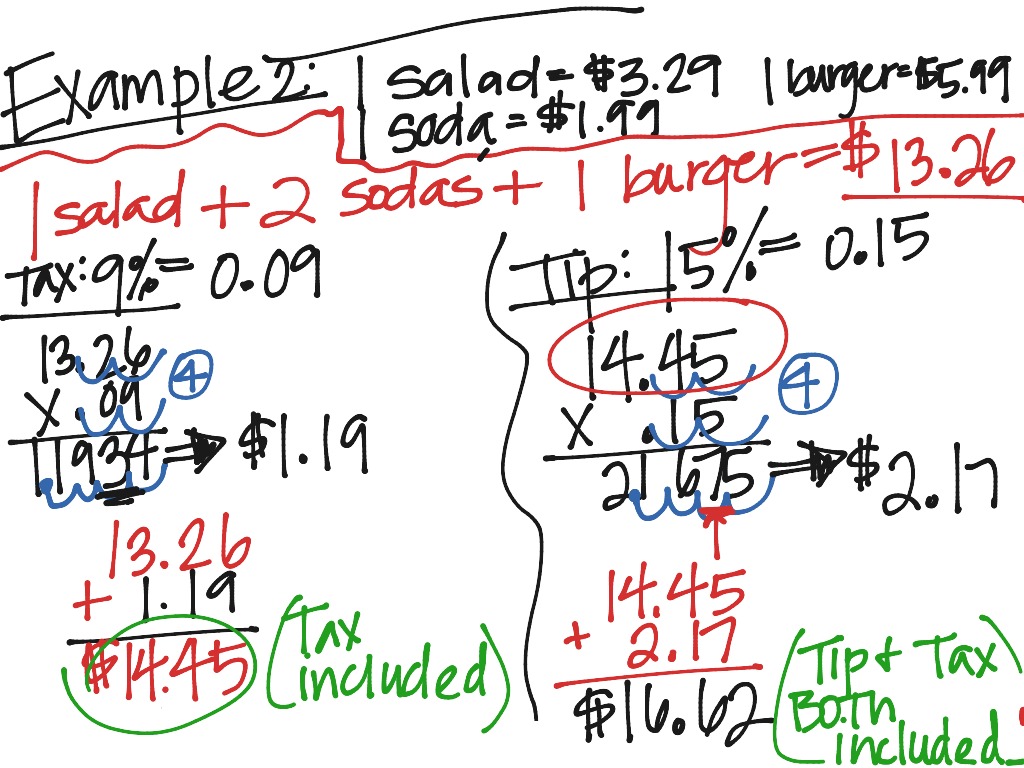 Example 2: 1 salad = $3.29 1 burger = $5.99
1 soda = $1.99
1 salad + 2 sodas + 1 burger = $13.26
Tax: 9% = 0.09
13.26
④
x .09
11934 ⇒ $1.19
13.26
+ 1.19
$14.45
(Tax
included)
Tip: 15% = 0.15
14.45
④
x .15
21675 ⇒ $2.17
14.45
+ 2.17
$16.62
(Tip + Tax
Both
included)